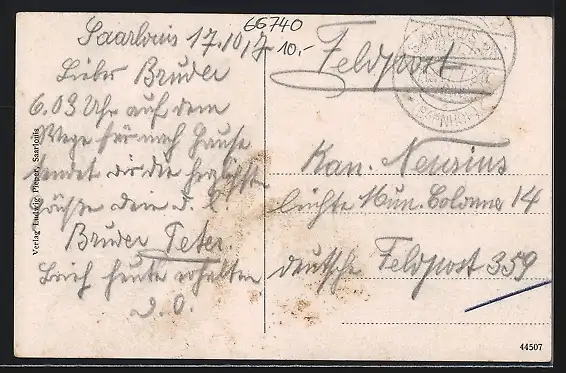 66740
10.-
Saarlouis 17.10.17
Lieber Bruder
6.03 Uhr auf dem
Wege hür nach Hause
sendet dir die herzlichste
Grüße dein d. l.
Bruder Peter
Brief heute erhalten
D. O.
Feldpost
SAARLOUIS
Kan. Neusius
leichte Mun. Colonne 14
deutsche Feldpost 359
Verlag Ludwig Pieper, Saarlouis
44507